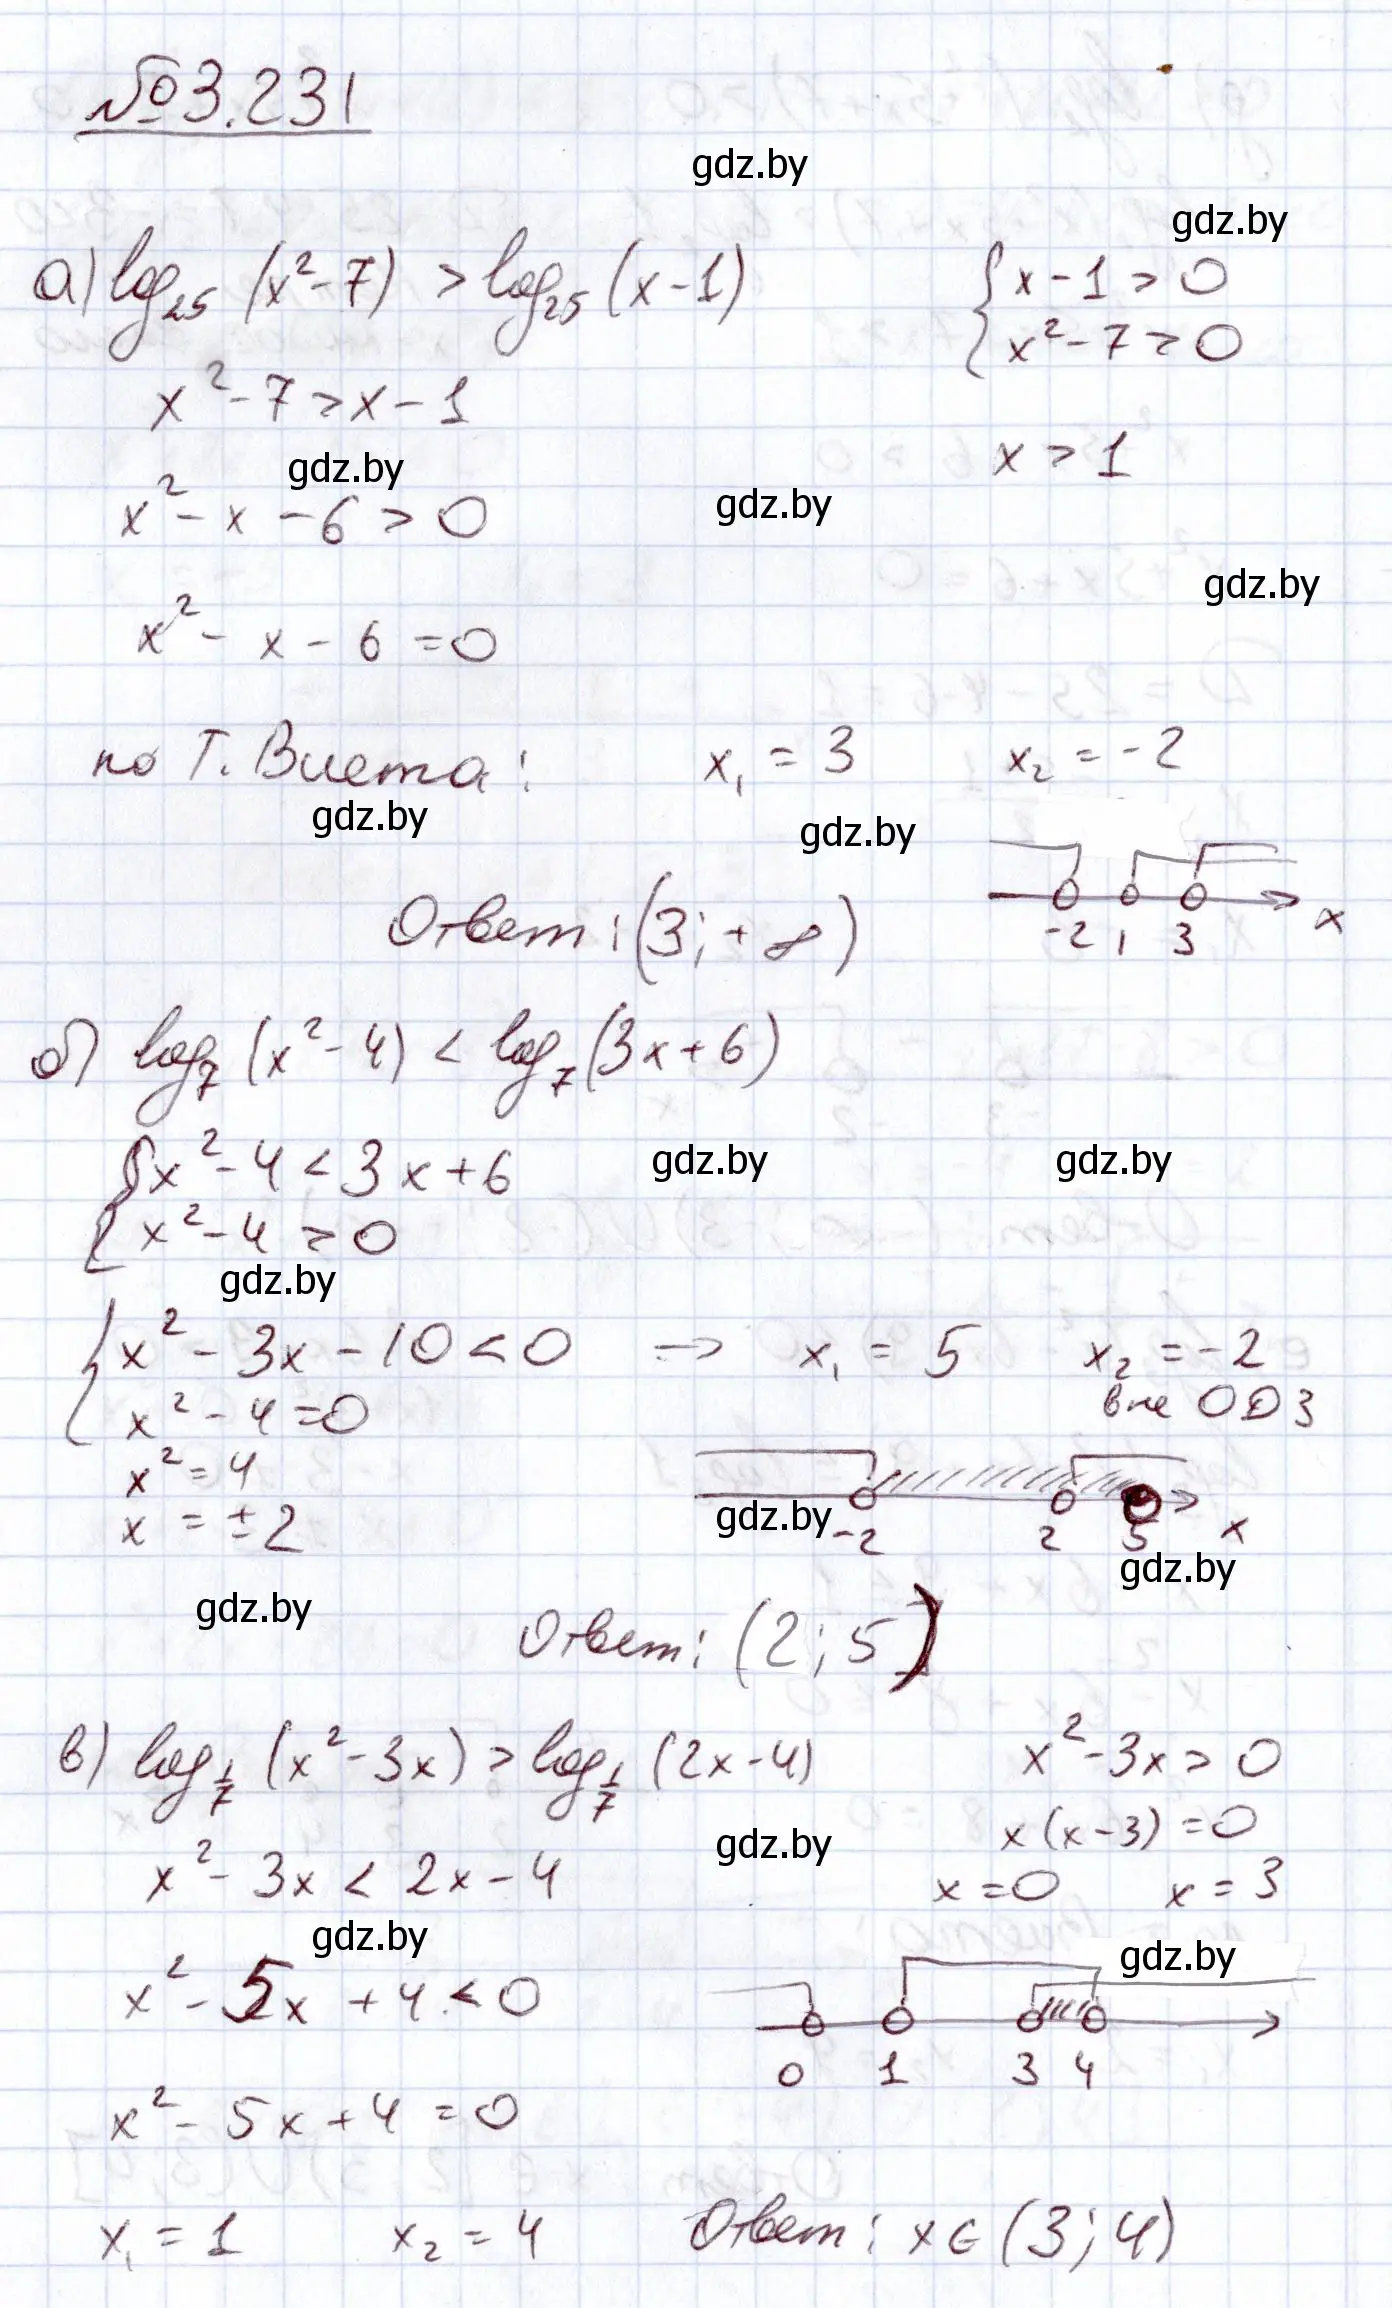 №3.231
gdz.by
gdz.by
а) log₂₅ (x²-7) > log₂₅ (x-1)
{ x-1 > 0
x²-7 > 0
x²-7 > x-1
x > 1
gdz.by
gdz.by
x² - x - 6 > 0
gdz.by
x² - x - 6 = 0
по Т. Виета: x₁ = 3 x₂ = -2
gdz.by
gdz.by
-2 1 3 x
Ответ: (3; +∞)
б) log₇ (x²-4) < log₇ (3x+6)
{ x²-4 < 3x+6
x²-4 > 0
gdz.by
gdz.by
gdz.by
{ x² - 3x - 10 < 0 → x₁ = 5 x₂ = -2
x² - 4 = 0
вне ОДЗ
x² = 4
x = ±2
gdz.by
-2 2 5 x
gdz.by
gdz.by
Ответ: (2; 5)
в) log₁/₇ (x²-3x) > log₁/₇ (2x-4)
x²-3x > 0
gdz.by
x(x-3) = 0
x²-3x < 2x-4
x = 0 x = 3
gdz.by
gdz.by
x² - 5x + 4 < 0
0 1 3 4
x² - 5x + 4 = 0
x₁ = 1 x₂ = 4
Ответ: x∈(3; 4)